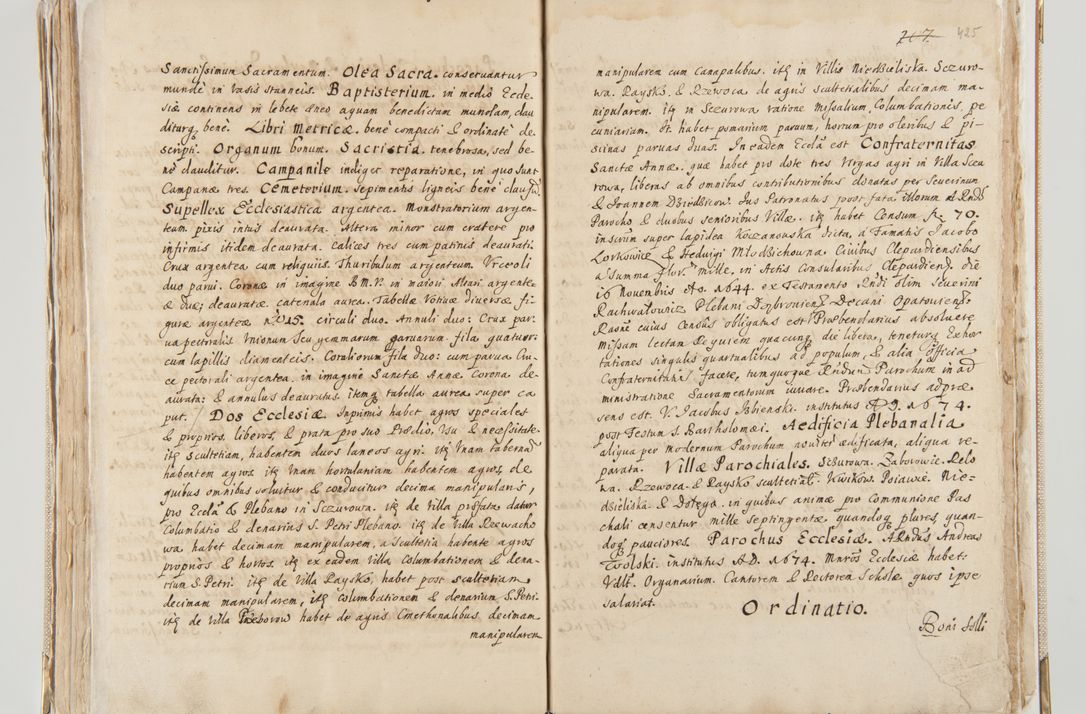 Sanctissimum Sacramentum. Olea Sacra. conservantur
munde in vasis stanneis. Baptisterium. in medio Eccle-
siæ continens in lebete æneo aquam benedictam mundam, clau
diturq; bene. Libri Metricæ. bene compacti & ordinate de
scripti. Organum bonum. Sacristia. tenebrosa, sed be-
ne clauditur. Campanile indiget reparatione, in quo sunt
Campanæ tres. Cæmeterium. sepimentis ligneis bene clausũ.
Supellex Ecclesiastica argentea. Monstratorium argen-
teum. pixis intus deaurata. Altera minor cum cratere pro
infirmis itidem deaurata. Calices tres cum patinis deaurati.
Crux argentea cum reliquiis. Thuribulum argenteum. Vrceoli
duo parvi. Coronæ in imagine B.M.V. in maiori Altari argente-
æ duæ; deauratæ. catenula aurea. Tabellæ Votivæ diversæ fi-
guræ argenteæ nro 15. circuli duo. Annuli duo: Crux par:
va pectoralis Vnionum seu gemmarum parvarum. fila quatuor:
cum lapillis diamenteis. Coraliorum fila duo: cum parva Cru
ce pectorali argentea. in imagine Sanctæ Annæ Corona de-
aurata: & annulus deauratus. itemq; tabella aurea super ca
put. / Dos Ecclesiæ. Inprimis habet agros speciales
& proprios, liberos, & prata pro suo Prædio, Vsu & necessitate.
itq; scultetiam, habentem duos laneos agri. itq; Vnam tabernã
habentem agros. itq; Vnam hortulaniam habentem agros, de
quibus omnibus solvitur & conducitur decima manipularis,
pro Ecclã & Plebano in Sczurowa. itq; de Villa præfata datur
Columbatio & denarius S. Petri Plebano. itq; de Villa Rzewacho
wa habet decimam manipularem, a Scultetia habente agros
proprios & hortos. itq; ex eadem Villa Columbationem & dena-
rium S. Petri. itq; de Villa Raysko, habet post scultetiam
decimam manipularem, itq; columbationem & denarium S. Petri.
itq; de Villa habet de agris Cmethonalibus decimam
manipularem
267. 425
manipularem cum Canapalibus. itq; in Villis Niedzieliska. Sczuro-
wa. Raysko, & Rzewoca de agris scultetialibus decimam ma-
nipularem. itq; in Sczurowa ratione Missalium, Columbationis, pe
cuniarium. Itq; habet pomarium parvum, hortum pro oleribus & pi-
scinas parvas duas. In eadem Ecclã est Confraternitas
Sanctæ Annæ. quæ habet pro dote tres Virgas agri in Villa Sczu
rowa, liberas ab omnibus contributionibus donatas per Severinum
& Joannem Dzierzicow. Jus Patronatus post fata illorum A Rndo
Parocho & duobus senioribus Villæ. itq; habet Censum fl. 70.
inscrip: super lapidea Koczanowska dicta, a Famatis Jacobo
Zorkowicz & Heduigi Młodzichowna. Civibus Clepardiensibus
a Summa flor. mille, in Actis Consularibus Clepardien: die
16 Novembris Ao. 1644. ex Testamento Rndi olim Severini
Rachwałowicz Plebani Dembronien: Decani Opatouien:
Raõne cuius Census obligatus est Præbendarius absolvere
Missam lectam Requiem quacunq; die libera, teneturq; Exhor
tationes singulis quartualibus ad populum, & alia officia
Confraternitatis facere, tumquoque Rndum Parochum in ad
ministratione Sacramentorum iuvare. Præbendarius ad præ
sens est. V. Jacobus institutus A.D. 1674.
post Festum S. Bartholomæi. Aedificia Plebanalia
aliqua per modernum Parochum noviter ædificata, aliqua re-
parata. Villæ Parochiales. Sczurowa. Zaborowie. Relo
wa. Rzewoca. & Raysko scultetial: Kwikow. Poiawie. Nie-
dzieliska & Dołega. in quibus animæ pro Communione Pas
chali censentur mille septingentæ quandoq; plures, quan-
doq; pauciores. Parochus Ecclesiæ. ARndus Andreas
Wolski. institutus A.D. 1674. Mnros Ecclesiæ habet:
Vdlt. Organarium. Cantorem & Rectorem Scholæ quos ipse
salariat.
Ordinatio.
Boni